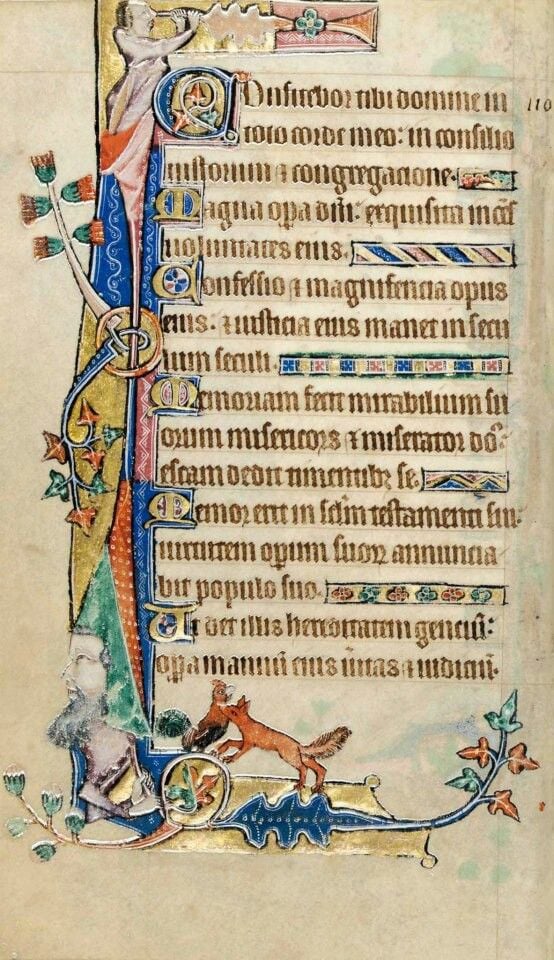 Confitebor tibi domine in 110
toto corde meo: in consilio
iustorum ⁊ congregacione.
Magna opa dni: exquisita in oēs
uoluntates eius.
Confessio ⁊ magnifencia opus
eius: ⁊ iusticia eius manet in secu
lum seculi.
Memoriam fecit mirabilium su
orum misericors ⁊ miserator dos:
escam dedit timentibꝫ se.
Memor erit in sclm testamenti sui:
uirtutem opum suoꝝ annuncia
bit populo suo.
Ut det illis hereditatem genciū:
opa manuū eius uitas ⁊ iudiciū.